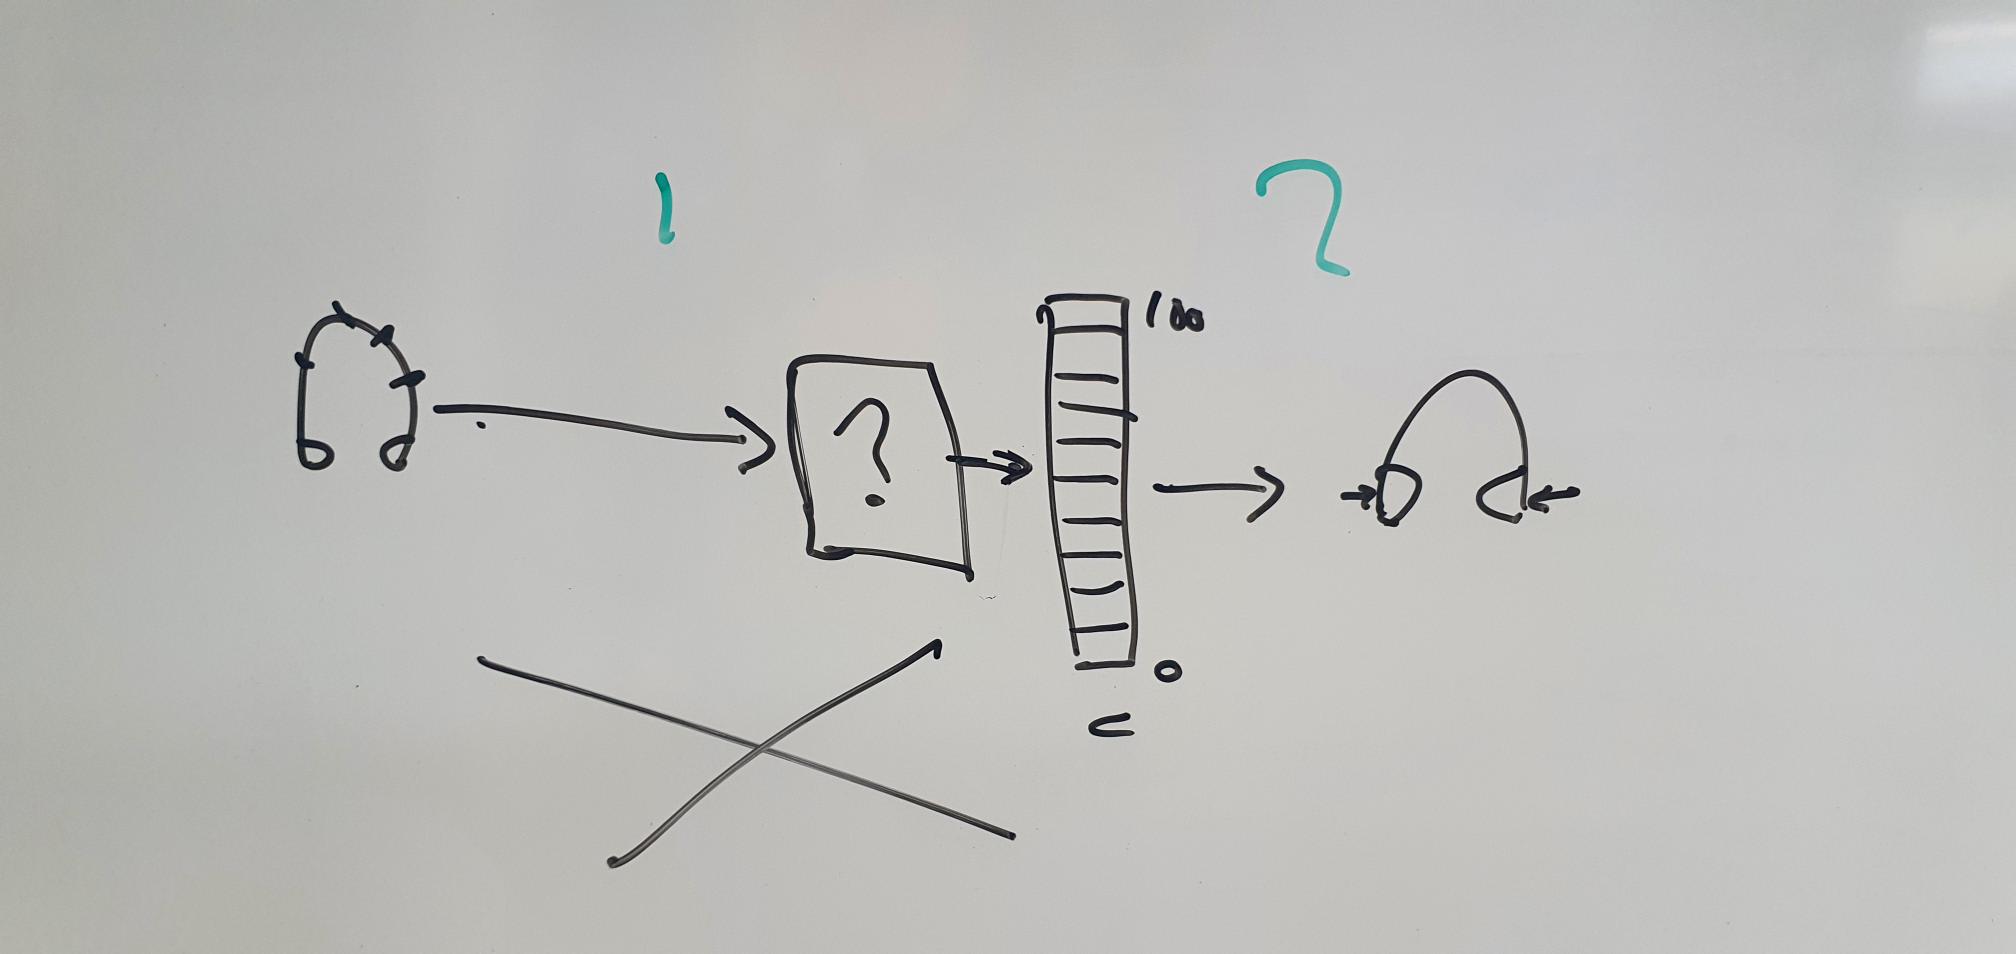 1
2
100
?
0
C